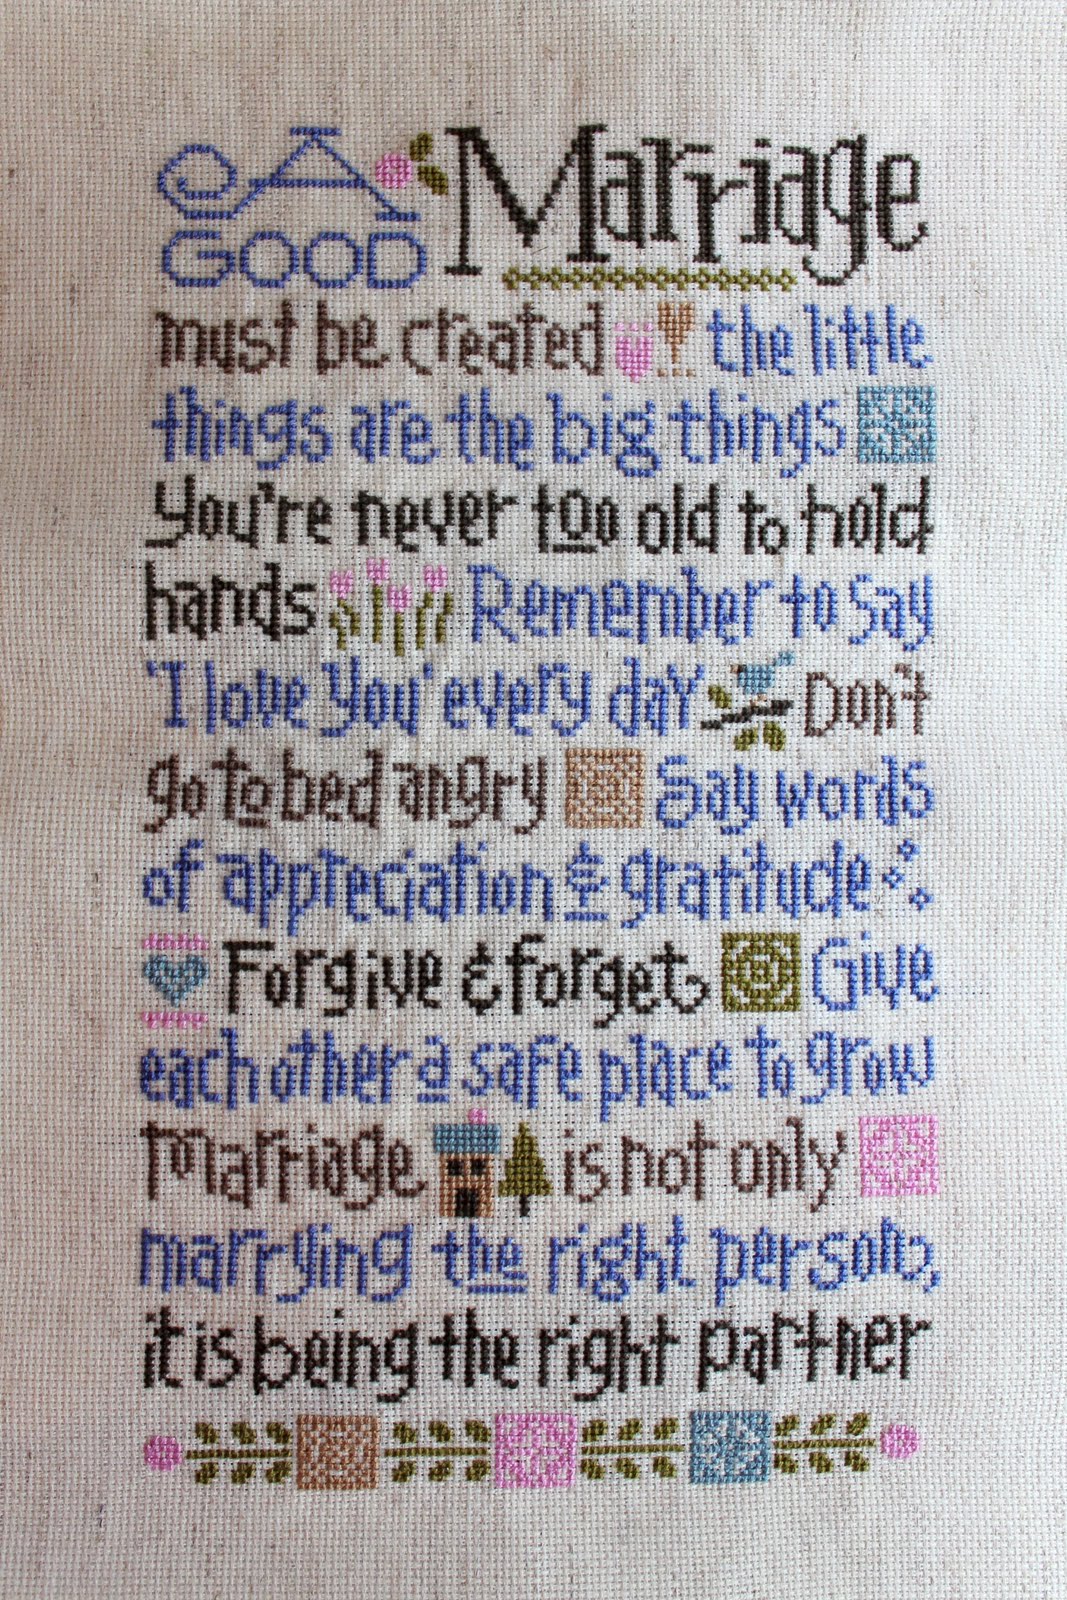 A GOOD Marriage
must be created the little
things are the big things
You're never too old to hold
hands Remember to Say
'I love You' every day Don't
go to bed angry Say words
of appreciation & gratitude
Forgive & forget Give
each other a safe place to grow
Marriage is not only
marrying the right person,
it is being the right partner